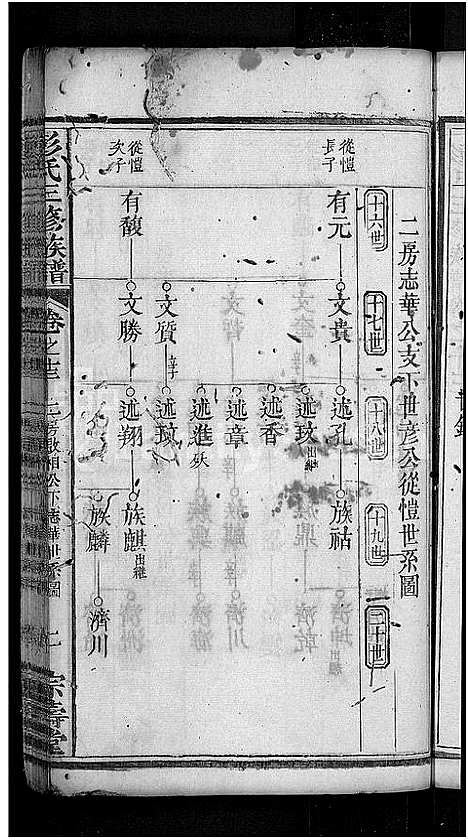 二房志華公支下世彦公從愷世系圖
十六世
十七世
十八世
十九世
二十世
從愷長子
有元
文貴
述孔
族祜
述玟出繼
述香
述章
述進殀
文質
述玟
從愷次子
有馥
文勝
述翔
族麒出繼
族麟
濟川
彭氏三修族譜
卷之
二房
世系圖
宗壽堂